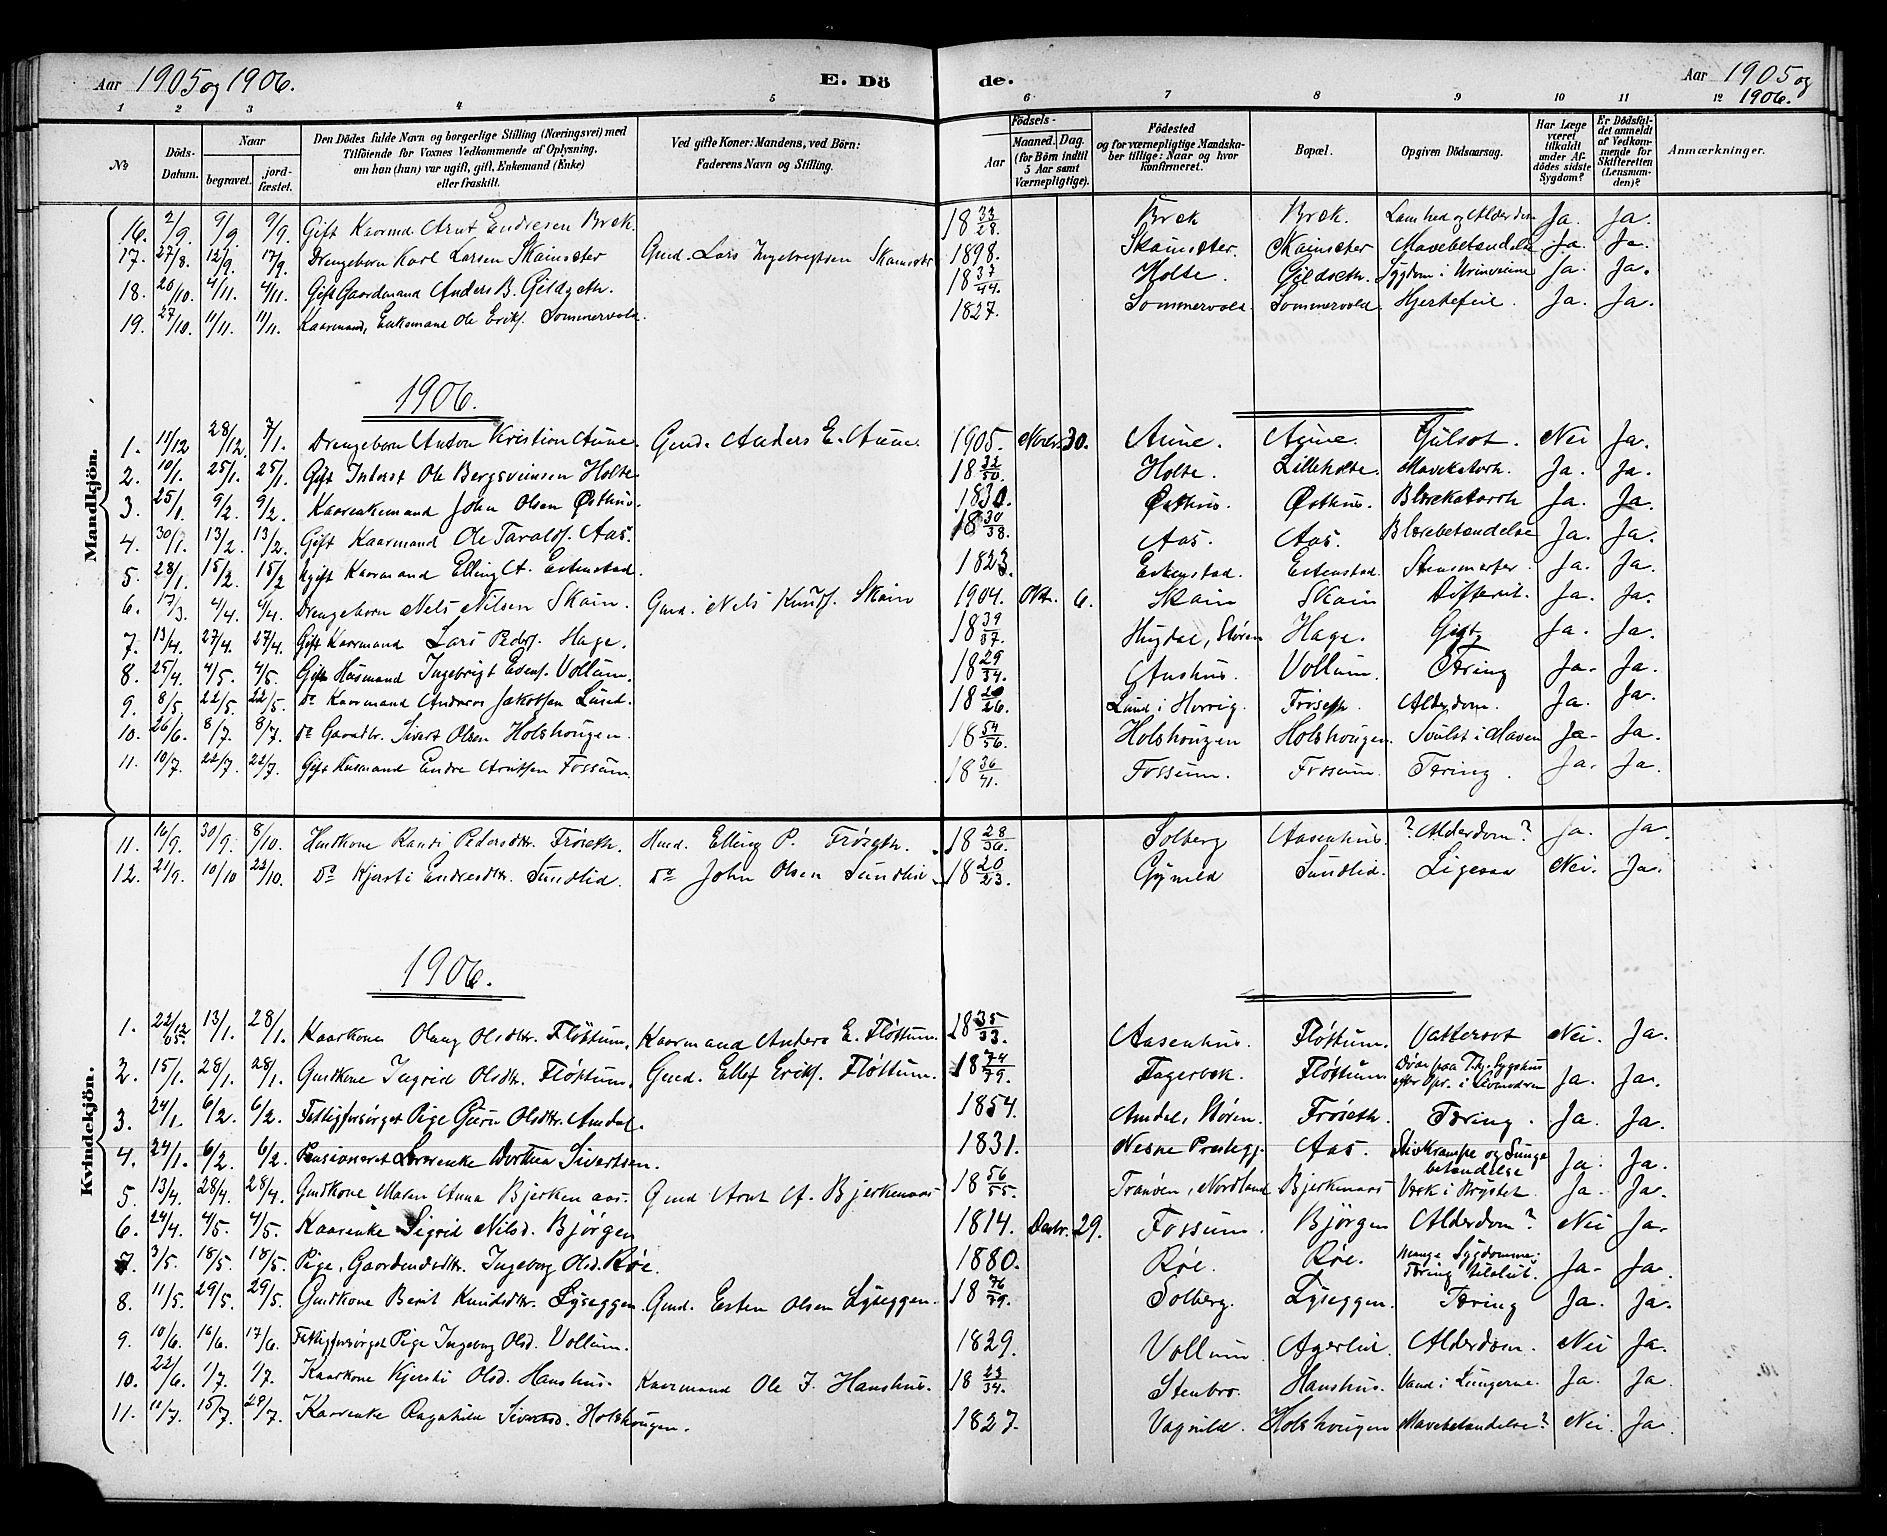 Aar 1905 og 1906. E. Dö de. Aar 1905 og 1906.
1 2 3 4 5 6 7 8 9 10 11 12
No Döds-Datum. Naar begravet. jordfæstet. Den Dödes fulde Navn og borgerlige Stilling (Næringsvei) med Tilföiende for Voxnes Vedkommende af Oplysning, om han (hun) var ugift, gift, Enkemand (Enke) eller fraskilt. Ved gifte Koner: Mandens, ved Börn: Faderens Navn og Stilling. Födsels- Aar Maaned. Dag. (for Börn indtil 5 Aar samt Værnepligtige). Födested og for værnepligtige Mandskaber tillige: Naar og hvor konfirmeret. Bopæl. Opgiven Dödsaarsag. Har Læge været tilkaldt under Afdödes sidste Sygdom? Er Dödsfaldet anmeldt af Vedkommende for Skifteretten (Lensmanden)? Anmærkninger.
Mandkjön.
16. 2/9. 9/9. 9/9. Gift Kaarmd. Arnt Endresen Brek. 18 33/28. Brek Brek. Lamhed og Ja. Ja.
17. 27/8. 12/9. 17/9. Drengebarn Karl Larsen Skainsæter Gmd. Lars Ingebrigtsen Skainsæter 1898. Skainsæter. Skainsæter Mavebetændelse Ja. Ja.
18. 20/10. 4/11. 4/11. Gift Gaardmand Anders B. Gildseth. 18 37/44. Holte. Gildseth. Sygdom i Urinveiene Ja. Ja.
19. 27/10. 11/11. 11/11. Kaarmand, Enkemand Ole Eriks. Sommervold. 1827. Sommervold. Sommervold. Hjertefeil. Ja. Ja.
1906.
1. 11/12 28/12. 7/1. Drengebarn Anton Kristian Aune. Gmd. Anders E. Aune. 1905. Novbr. 30. Aune. Aune. Gulsot. Nei Ja.
2. 10/1. 25/1. 25/1. Gift Inderst Ole Bergsveinsen Holte. 18 32/50. Holte. Lilleholte. Mavekatarh. Ja. Ja.
3. 25/1. 9/2. 9/2. Kaarenkemand John Olsen Østhus. 1830. Østhus. Østhus. Blærekatarrh Ja. Ja.
4. 30/1. 13/2. 13/2. Gift Kaarmand Ole Taralds. Aas. 18 30/38. Aas. Aas. Blærebetændelse Ja. Ja.
5. 28/1. 15/2. 15/2 Ugift Kaarmand Elling A. Estenstad. 1823. Estenstad. Estenstad. Stensmerter. Ja. Ja.
6. 17/3. 4/4. 4/4. Drengebarn Nels Nilsen Skain. Gmd. Nels Knuts. Skain 1904. Okt. 6. Skain Skain Difterit. Ja. Ja.
7. 13/4. 27/4. 27/4. Gift Kaarmand Lars Peders. Hage. 18 39/37. Hugdal, Støren Hage. Gigt Ja. Ja.
8. 25/4. 4/5. 4/5. Gift Husmand Ingebrigt Evens. Vollum. 18 29/34. Aashus. Vollum. Tæring Ja. Ja.
9. 8/5. 22/5. 22/5. Do Kaarmand Anders Jakobsen Lund. 18 20/26. Lund i Horrig. Frøseth. Alderdom. Ja. Ja.
10. 26/6. 8/7. 8/7. Do Gaardbr. Sivert Olsen Holshougen. 18 54/56. Holshougen Holshougen. Svulst i Maven Ja. Ja.
11. 10/7. 22/7. 22/7. Gift Husmand Endre Arntsen Fossum. 18 36/41. Fossum. Fossum. Tæring. Ja. Ja.
Kvindekjön.
11. 16/9. 30/9. 8/10. Huskone Randi Pedersdtr. Frøseth. Husd. Elling P. Frøseth. 18 28/36. Solberg Aasenhus. ? Alderdom? Ja. Ja.
12. 21/9. 10/10 22/10. Do Kjersti Endresdtr. Sundlid. Do John Olsen Sundlid. 18 20/23. Gynild Sundlid. Ligesaa Nei. Ja.
1906.
1. 22/12 05. 13/1. 28/1. Kaarkone Olaug Olsdtr. Fløttum. Kaarmand Anders E. Fløttum. 18 35/33. Aasenhus. Fløttum. Vattersot Nei. Ja.
2. 15/1. 28/1. 28/1. Gmdkone Ingrid Olsdtr. Fløttum. Gmd. Ellef Eriks. Fløttum. 18 74/79. Fagerbek. Fløttum. Døde paa Thj. Sygehus efter Opr. i Ja. Ja.
3. 24/1. 6/2. 6/2. Fattigforsørget Pige Guru Olsdtr. Amdal. 1854. Amdal, Støren. Frøseth. Tæring. Ja. Ja.
4. 24/1. 6/2. 6/2. Pensioneret Lærerenke Dorthea Sivertsen. 1831. Nesne Prestegj. Aas. Stivkrampe og Lungebetændelse Ja. Ja.
5. 13/4. 28/4. 28/4. Gmdkone Maren Anna Bjerkenaas. Gmd Arnt A. Bjerkenaas 18 56/55. Tranøen, Nordland Bjerkenaas Værk i Brystet. Ja. Ja.
6. 24/4. 4/5. 4/5. Kaarenke Sigrid Nilsd. Bjørgen 1814. Decbr. 29. Fossum. Bjørgen Alderdom? Nei Ja.
7. 3/5. 18/5. 18/5. Pige, Gaardmdsdtr. Ingeborg Olsd. Røe. 1880. Røe. Røe. Mange Sygdomme; Tæring tilslut. Ja. Ja.
8. 11/5. 29/5. 29/5. Gmdkone Berit Knudsdtr. Lyseggen. Gmd. Esten Olsen Lyseggen. 18 76/79. Solberg. Lyseggen. Tæring Ja. Ja.
9. 10/6. 16/6. 17/6. Fattigforsørget Pige Ingeborg Olsd. Vollum. 1829. Vollum. Agerlid. Alderdom. Nei Ja.
10. 22/6. 1/7. 1/7. Kaarkone Kjersti Olsd. Hanshus. Kaarmand Ole J. Hanshus. 18 23/34. Stenbro. Hanshus. Vand i Lungerne. Ja. Ja
11. 11/7. 15/7. 28/7. Kaarenke Ragnhild Sivertsd. Holshougen. 1827. Vagnild. Holshougen Mavebetændelse? Nei. Ja.